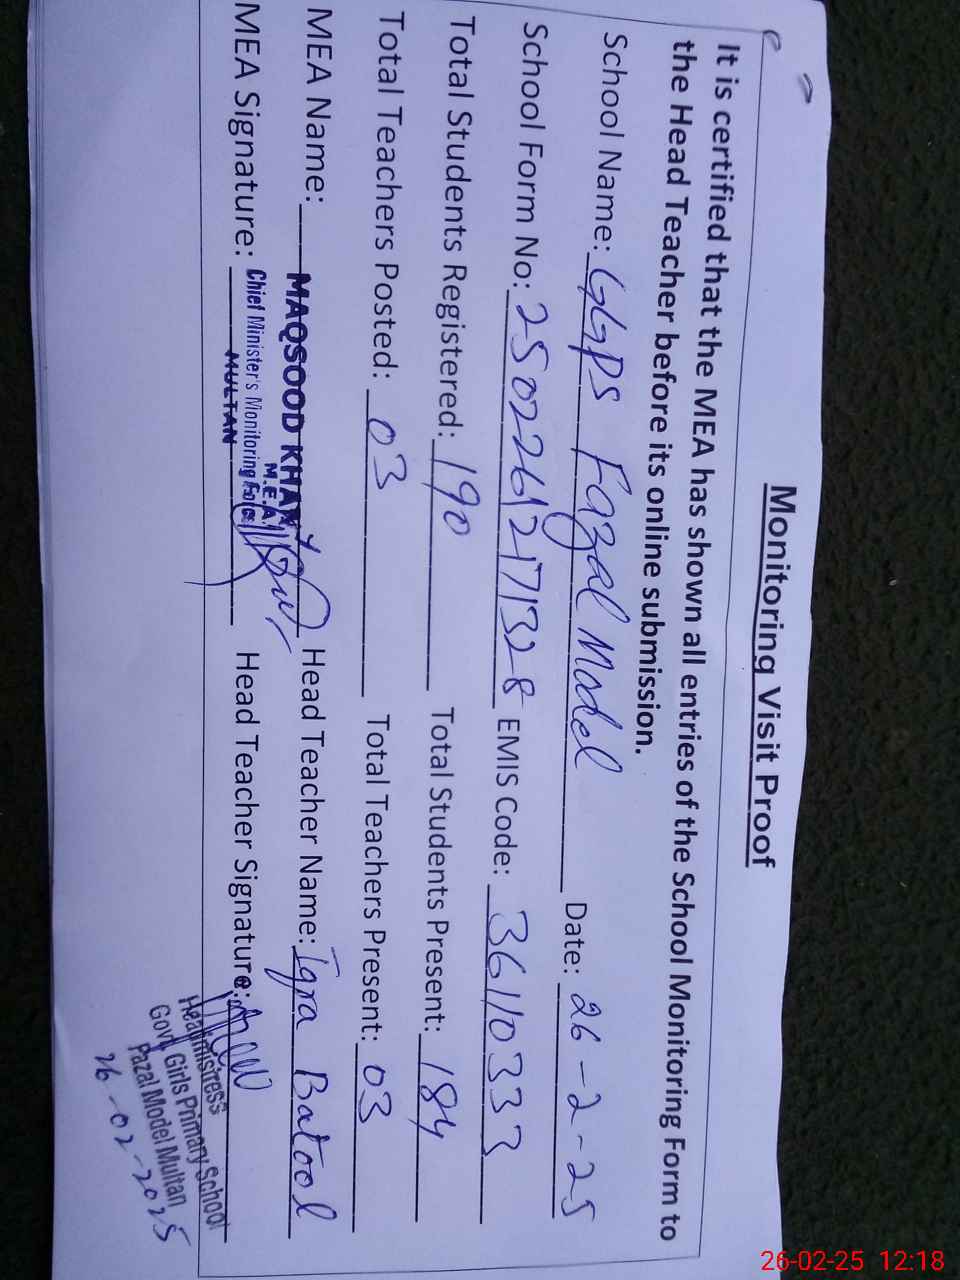 Monitoring Visit Proof
It is certified that the MEA has shown all entries of the School Monitoring Form to
the Head Teacher before its online submission.
School Name: GGPS Fazal Model Date: 26-2-25
School Form No: 25022612171328 EMIS Code: 36110333
Total Students Registered: 190 Total Students Present: 184
Total Teachers Posted: 03 Total Teachers Present: 03
MEA Name: MAQSOOD KHAN Head Teacher Name: Iqra Batool
M.E.A
MEA Signature: Chief Minister's Monitoring Force Head Teacher Signature:
MULTAN
Headmistress
Govt Girls Primary School
Fazal Model Multan
26-02-2025
26-02-25 12:18